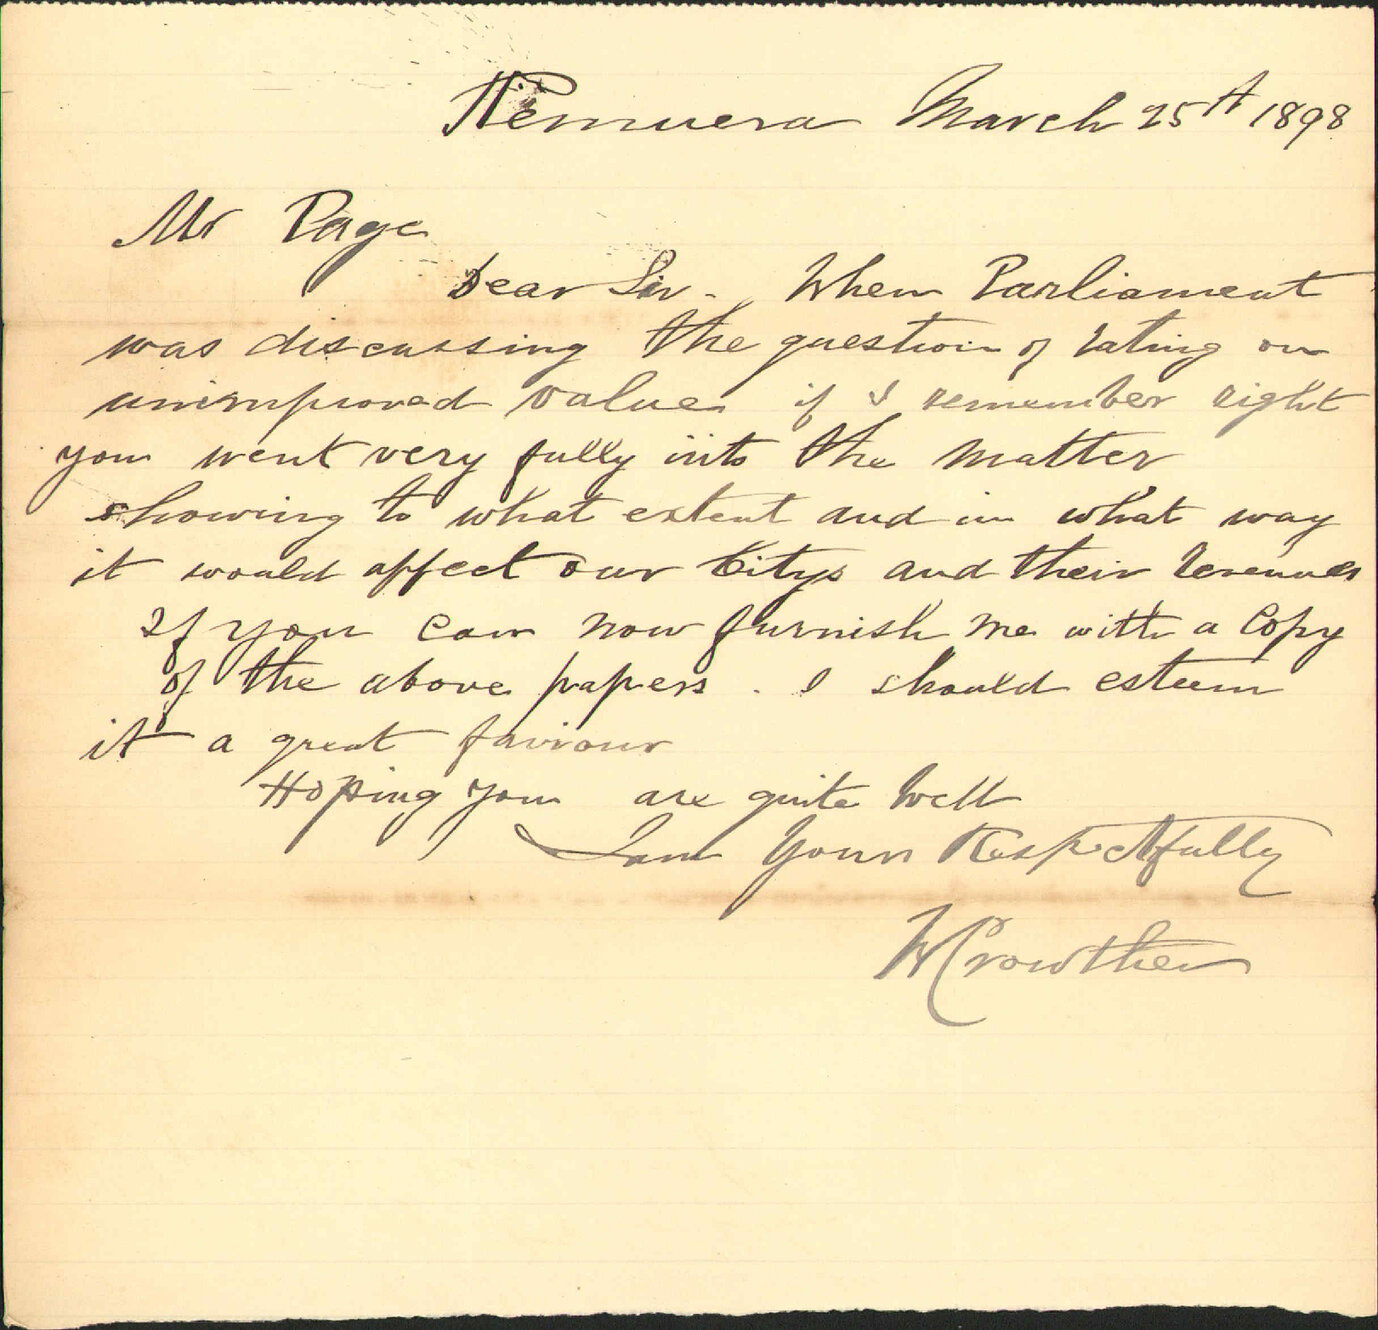 Remuera March 25th 1898
Mr Page
Dear Sir - When Parliament
was discussing the question of rating on
unimproved value if I remember right
you went very fully into the matter
showing to what extent and in what way
it would affect our Citys and their Revenues
If you can now furnish me with a Copy
of the above papers. I should esteem
it a great faviour
Hoping you are quite Well
I am Yours Respectfully
W Crowther